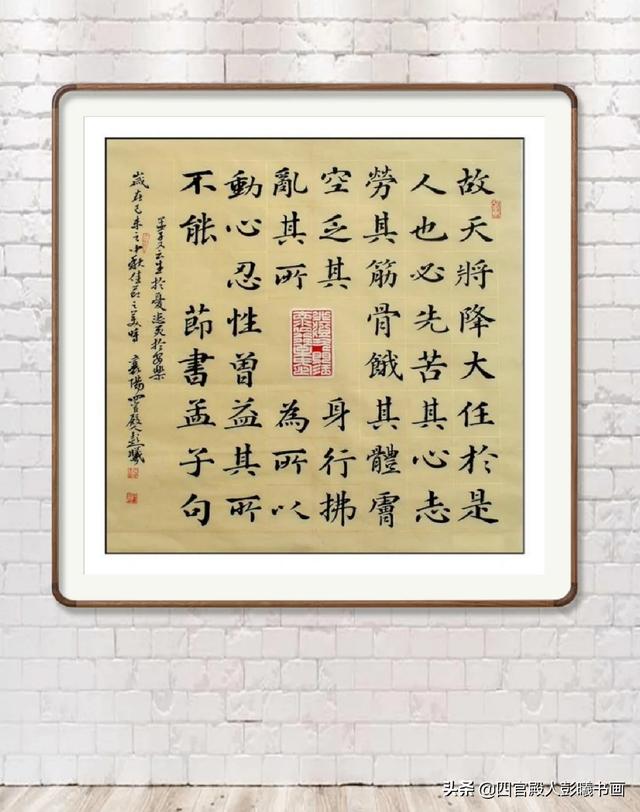 故天將降大任於是
人也必先苦其心志
勞其筋骨餓其體膚
空乏其身行拂
亂其所為所以
動心忍性曾益其所
不能 節書孟子句
孟子又云生於憂患死於安樂
歲在己未之中秋佳節之美時 襄陽四官殿人彭曦
头条 @四官殿人彭曦书画